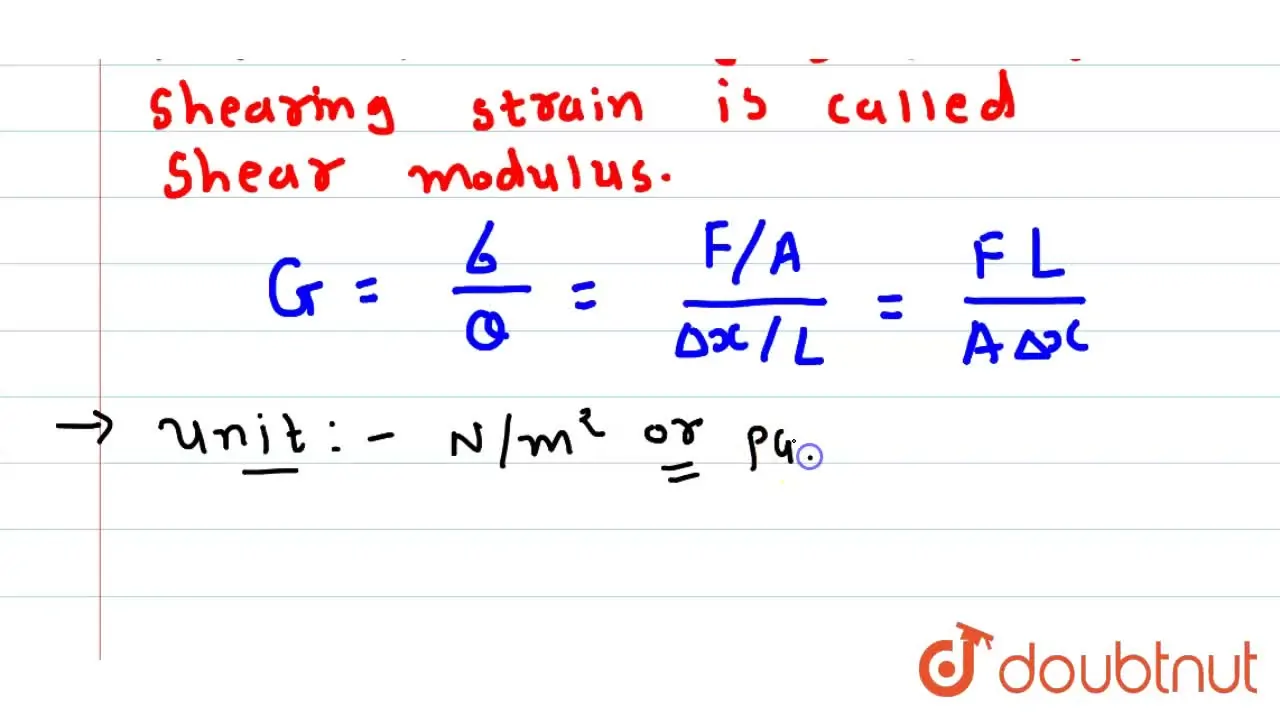 shearing strain is called
shear modulus.
G = σ/θ = F/A / Δx/L = F L / A Δx
→ Unit :- N/m² or Pa.
doubtnut